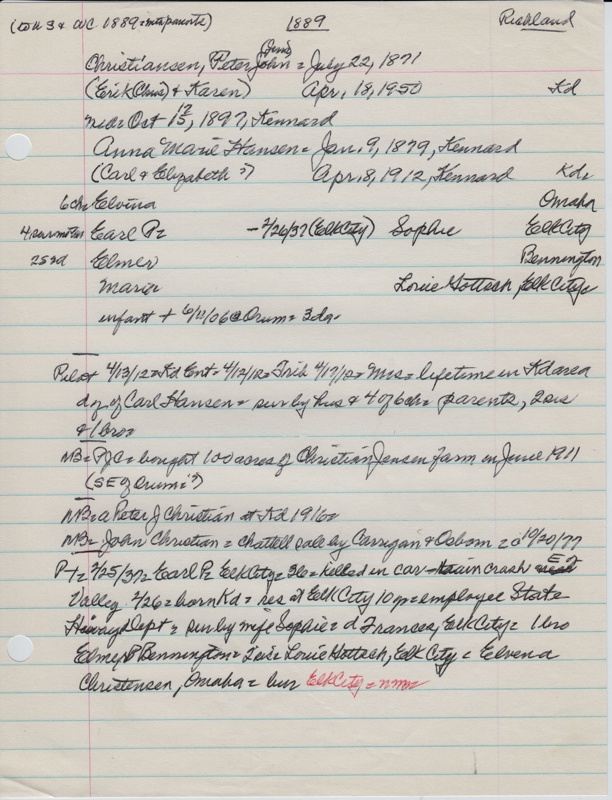 (to # 3 & WC 1889 = into parents) 1889 Richland
(Jens)
Christiansen, Peter John = July 22, 1871
(Erik (Chris) & Karen) Apr. 18, 1950 Kd
md = Oct 12/15, 1897, Kennard
Anna Marie Hansen = Jan. 9, 1879, Kennard
(Carl & Elizabeth ?) Apr. 8, 1912, Kennard Kd =
6 ch = Elvina Omaha
4 surmother Earl P = - 2/26/37 (Elk City) Sophie Elk City
2 s 2 d Elmer Bennington
Marie Louie Gottsch, Elk City =
infant + 6/11/06 @ Orum = 3 da.
Pilot 4/13/12 = Kd Ent = 4/12/12 = Trib 4/17/12 = Mrs = lifetime in Kd area
d of Carl Hansen = sur by hus & 4 of 6 ch = parents, 2 sis
& 1 bro =
NB = PJC = bought 100 acres of Christian Jensen farm in June 1911
(SE of Orum = ?)
NB = a Peter J Christian at Kd 1916 =
NB = John Christian = chattell sale by Carrigan & Osborn = @ 10/20/77
Pt = 2/25/37 = Earl P = Elk City = 36 = killed in car train crash E of
Valley 2/26 = born Kd = res at Elk City 10 y = employee State
Hiway Dept = sur by wife Sophie = d Frances, Elk City = 1 bro
Elmer P Bennington = 2 sis = Louie Gottsch, Elk City = Elvena
Christensen, Omaha = bur Elk City = nmn =